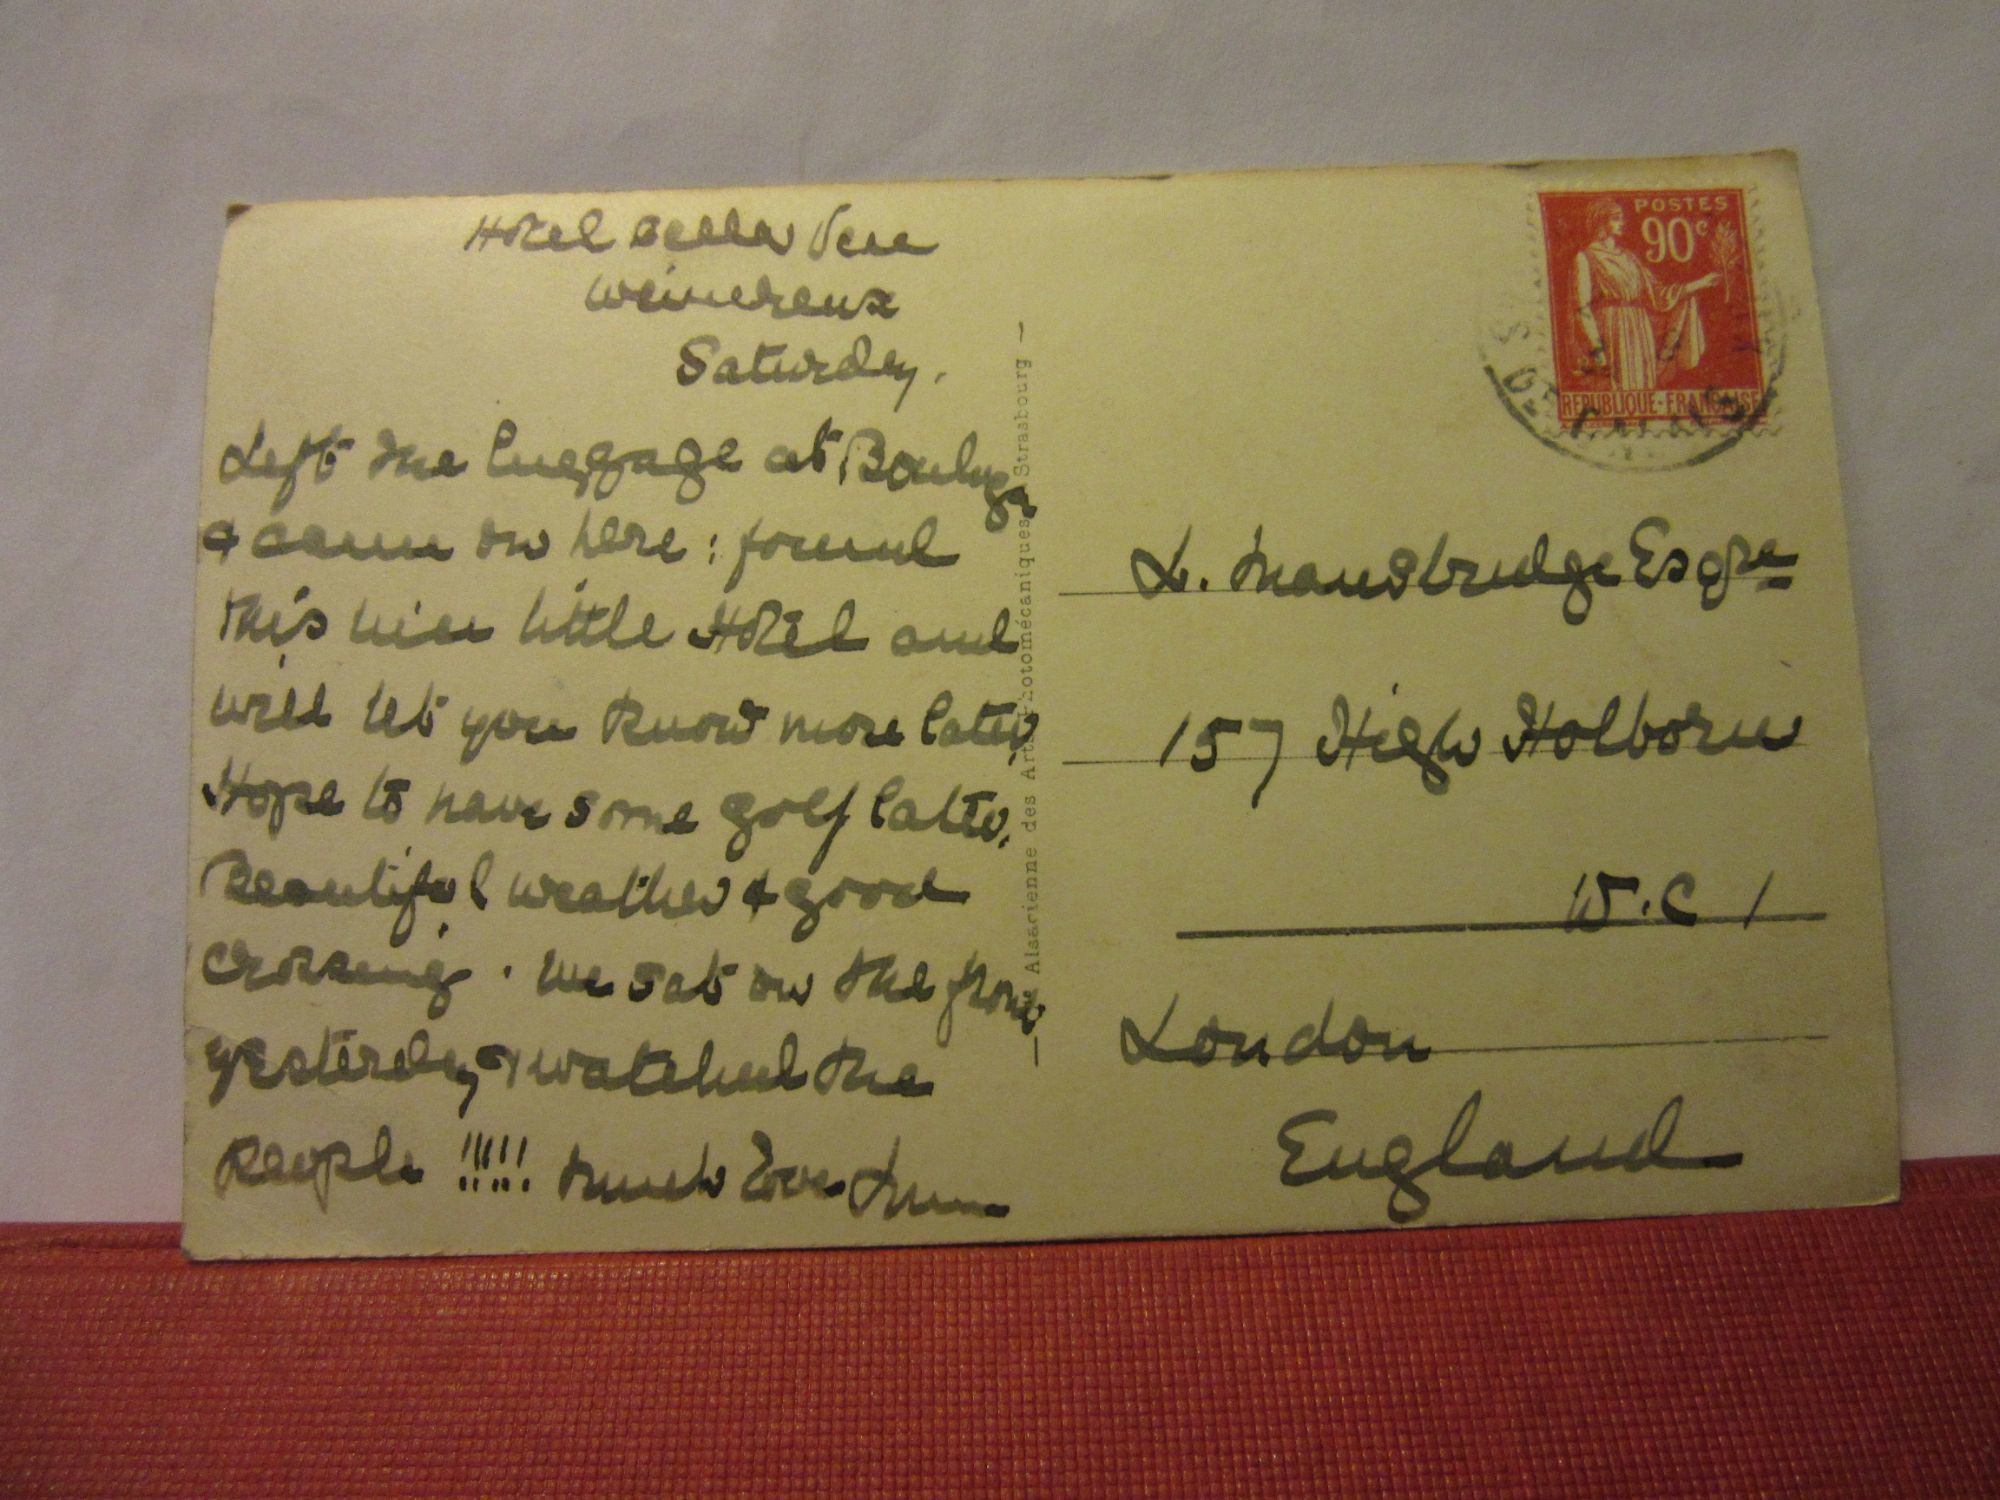 Hotel Bella Vue
Wimereux
Saturday.
Left the luggage at Boulogne
& came on here: found
this nice little Hotel and
will let you know more later
Hope to have some golf later.
Beautiful weather & good
crossing. We sat on the front
yesterday & watched the
people !!!!! Much Love
POSTES
90c
REPUBLIQUE-FRANÇAISE
L. Mansbridge Esqre
157 High Holborn
W.C 1
London
England
Alsacienne des Arts Photomécaniques Strasbourg —